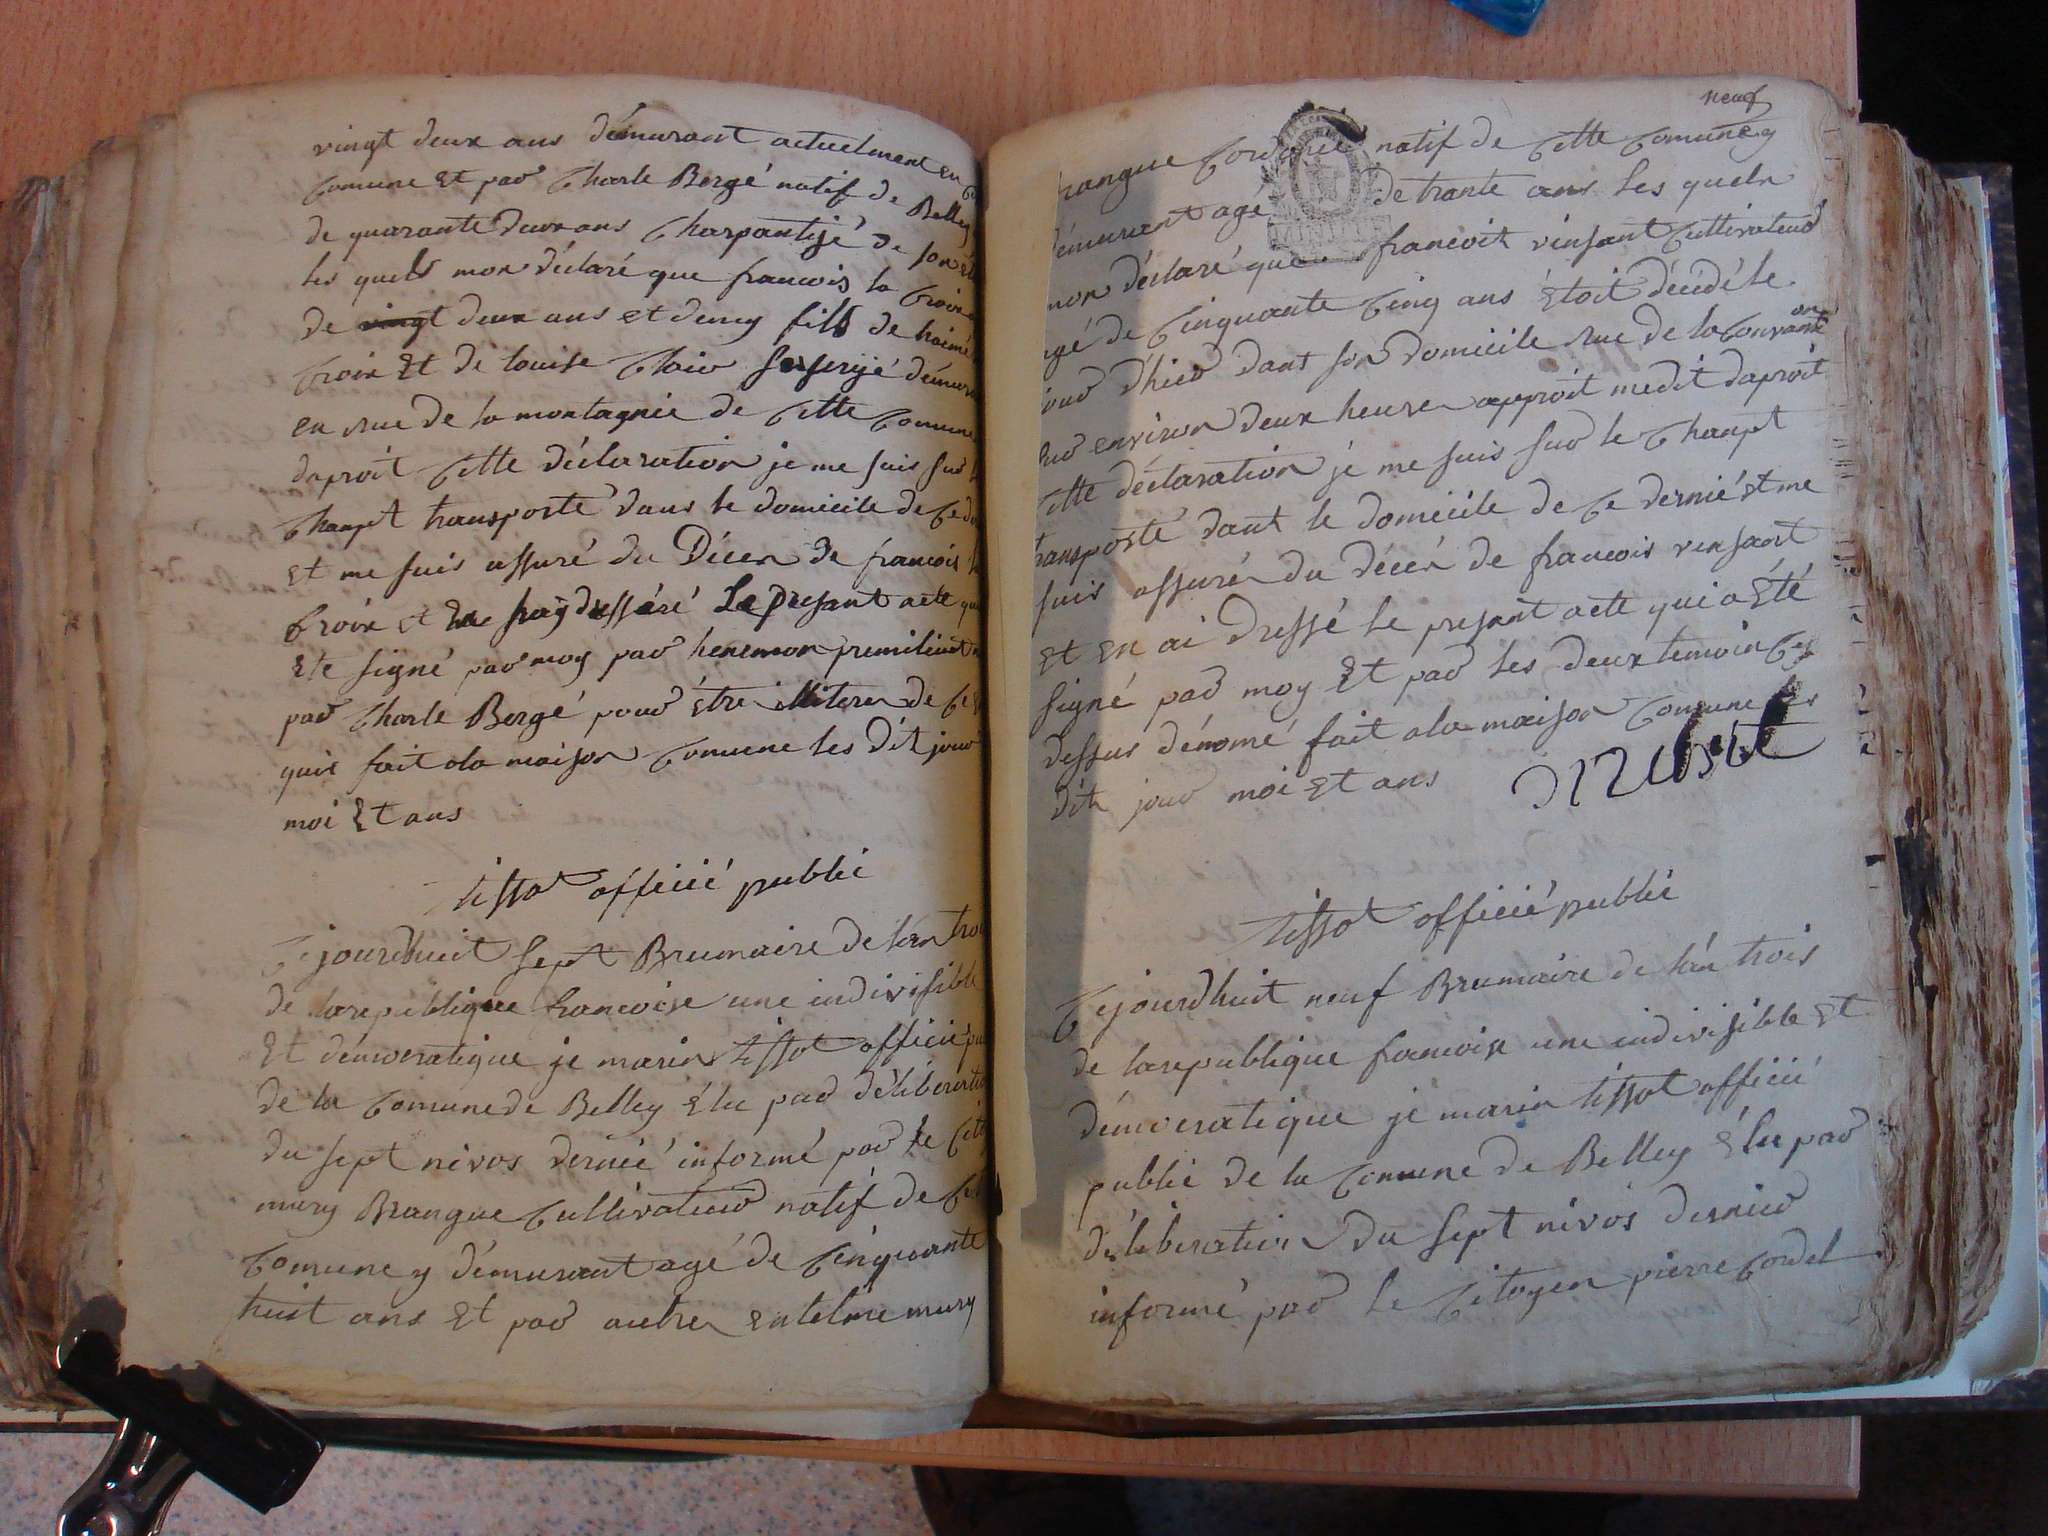 vingt deux ans démurant actuelment en
comune Et par Charle Bergé natif de Belley
de quarante deux ans Charpantiјé de son
les quels mon déclaré que francois la Croix
de vingt deux ans et demy fils de
Croix Et de louise Clair démur
en Rue de la montagnie de Cette Comune
daproit Cette déclaration je me suis sur
Chanpt transporté dans le domicile de Ce
Et me suis assuré du Décer de francois
Croix et Le presant acte
Ete signé par moy par
par Charle Bergé pour étre illiterer de Ce
quis fait ala maison Comune les Dit jour
moi Et ans
tissot officié public
Ce jourdhuit sept Brumaire de l'an trois
de larepublique francoise une indivisible
Et démocratique je marin tissot officié
de la Comune de Belley élu par déliberati
du sept nivos dernié informé par le
mury Brangue Cultivateur natif de
Comune y démurant agé de Cinquante
huit ans Et par autre entelme mury
neuf
rangue natif de Cette Comune y
démurant agé de trante ans les quels
mon déclaré que francois vinsant Cultivateur
agé de Cinquante Cinq ans étoit décédé le
jour d'hier dans son domicile Rue de la Convantion
sur environ deux heures approit medit daproit
Cette déclaration je me suis sur le Chanpt
transporté dant le domicile de Ce dernié Et me
suis assurér du décér de francois vinsant
Et en ai Dressé le presant acte qui a été
signé par moy Et par les deux temoin Cy
dessus dénomé fait ala maison Comune les
dit jour moi Et ans
tissot officié public
Ce jourdhuit neuf Brumaire de l'an trois
de larepublique francoise une indivisible Et
démocratique je marin tissot officié
public de la Comune de Belley élu par
déliberation du sept nivos dernier
informé par le Citoyen pierre Cordel